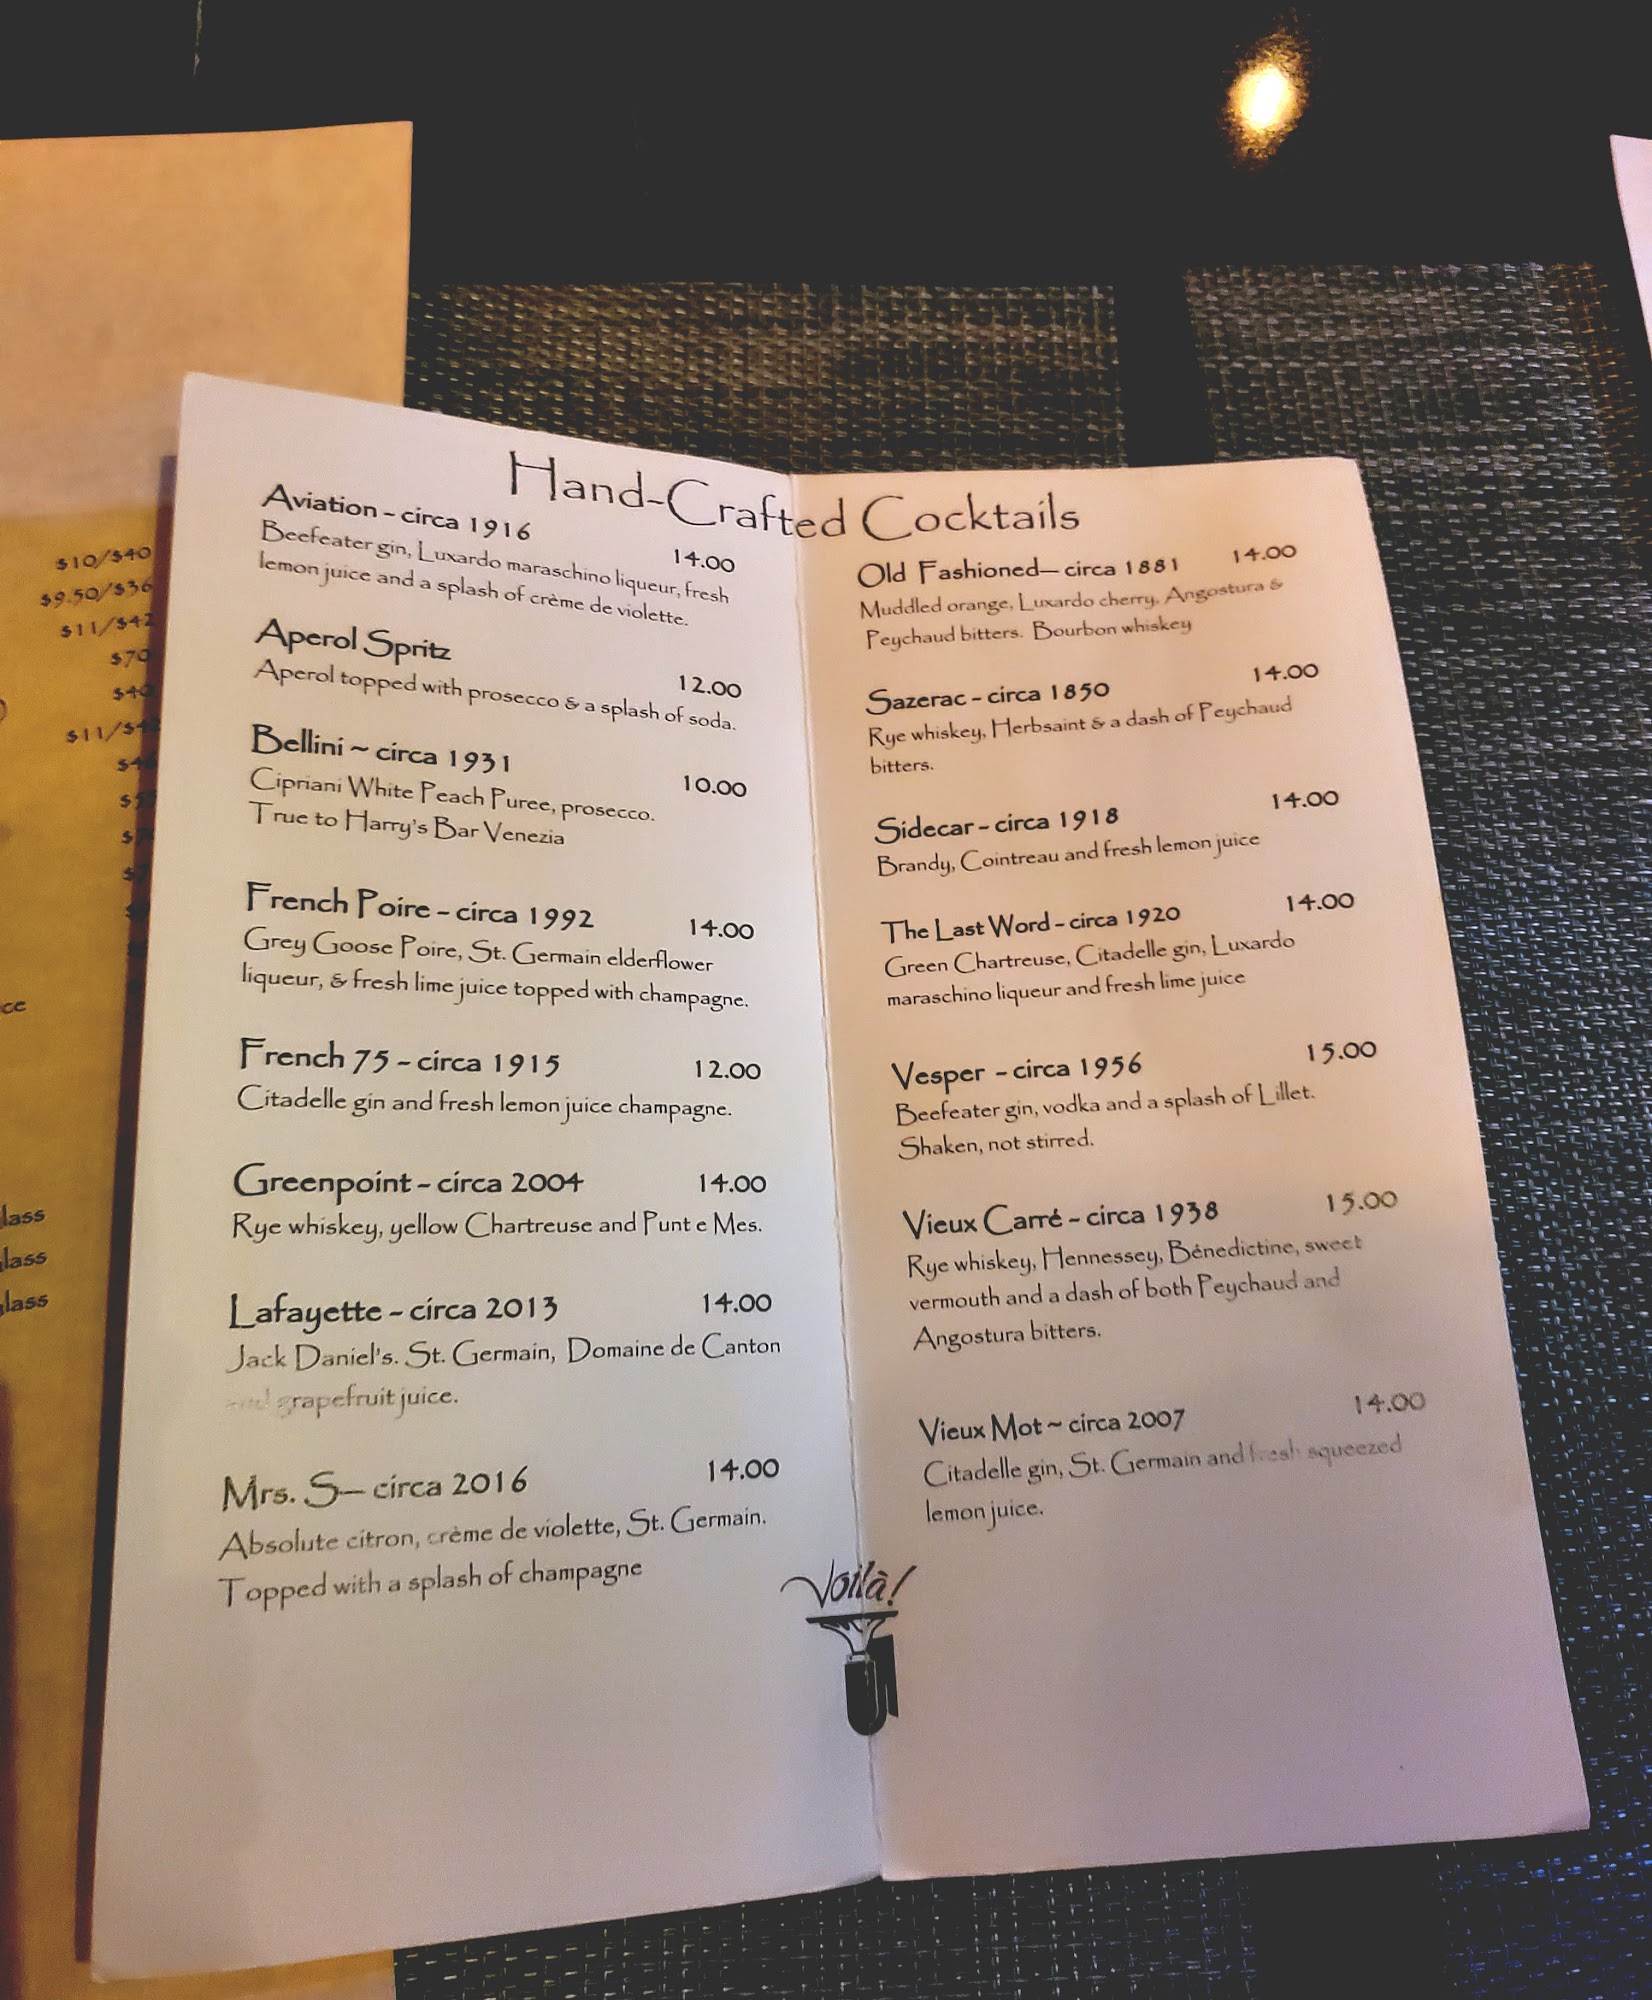 Hand-Crafted Cocktails
Aviation - circa 1916
14.00
Beefeater gin, Luxardo maraschino liqueur, fresh
lemon juice and a splash of crème de violette.
Aperol Spritz
12.00
Aperol topped with prosecco & a splash of soda.
Bellini ~ circa 1931
10.00
Cipriani White Peach Puree, prosecco.
True to Harry's Bar Venezia
French Poire - circa 1992
14.00
Grey Goose Poire, St. Germain elderflower
liqueur, & fresh lime juice topped with champagne.
French 75 - circa 1915
12.00
Citadelle gin and fresh lemon juice champagne.
Greenpoint - circa 2004
14.00
Rye whiskey, yellow Chartreuse and Punt e Mes.
Lafayette - circa 2013
14.00
Jack Daniel's. St. Germain, Domaine de Canton
and grapefruit juice.
Mrs. S— circa 2016
14.00
Absolute citron, crème de violette, St. Germain.
Topped with a splash of champagne
Old Fashioned— circa 1881
14.00
Muddled orange, Luxardo cherry, Angostura &
Peychaud bitters. Bourbon whiskey
Sazerac - circa 1850
14.00
Rye whiskey, Herbsaint & a dash of Peychaud
bitters.
Sidecar - circa 1918
14.00
Brandy, Cointreau and fresh lemon juice
The Last Word - circa 1920
14.00
Green Chartreuse, Citadelle gin, Luxardo
maraschino liqueur and fresh lime juice
Vesper - circa 1956
15.00
Beefeater gin, vodka and a splash of Lillet.
Shaken, not stirred.
Vieux Carré - circa 1938
15.00
Rye whiskey, Hennessey, Bénedictine, sweet
vermouth and a dash of both Peychaud and
Angostura bitters.
Vieux Mot ~ circa 2007
14.00
Citadelle gin, St. Germain and fresh squeezed
lemon juice.
Voilà!
$10/$40
$9.50/$36
$11/$42
$70